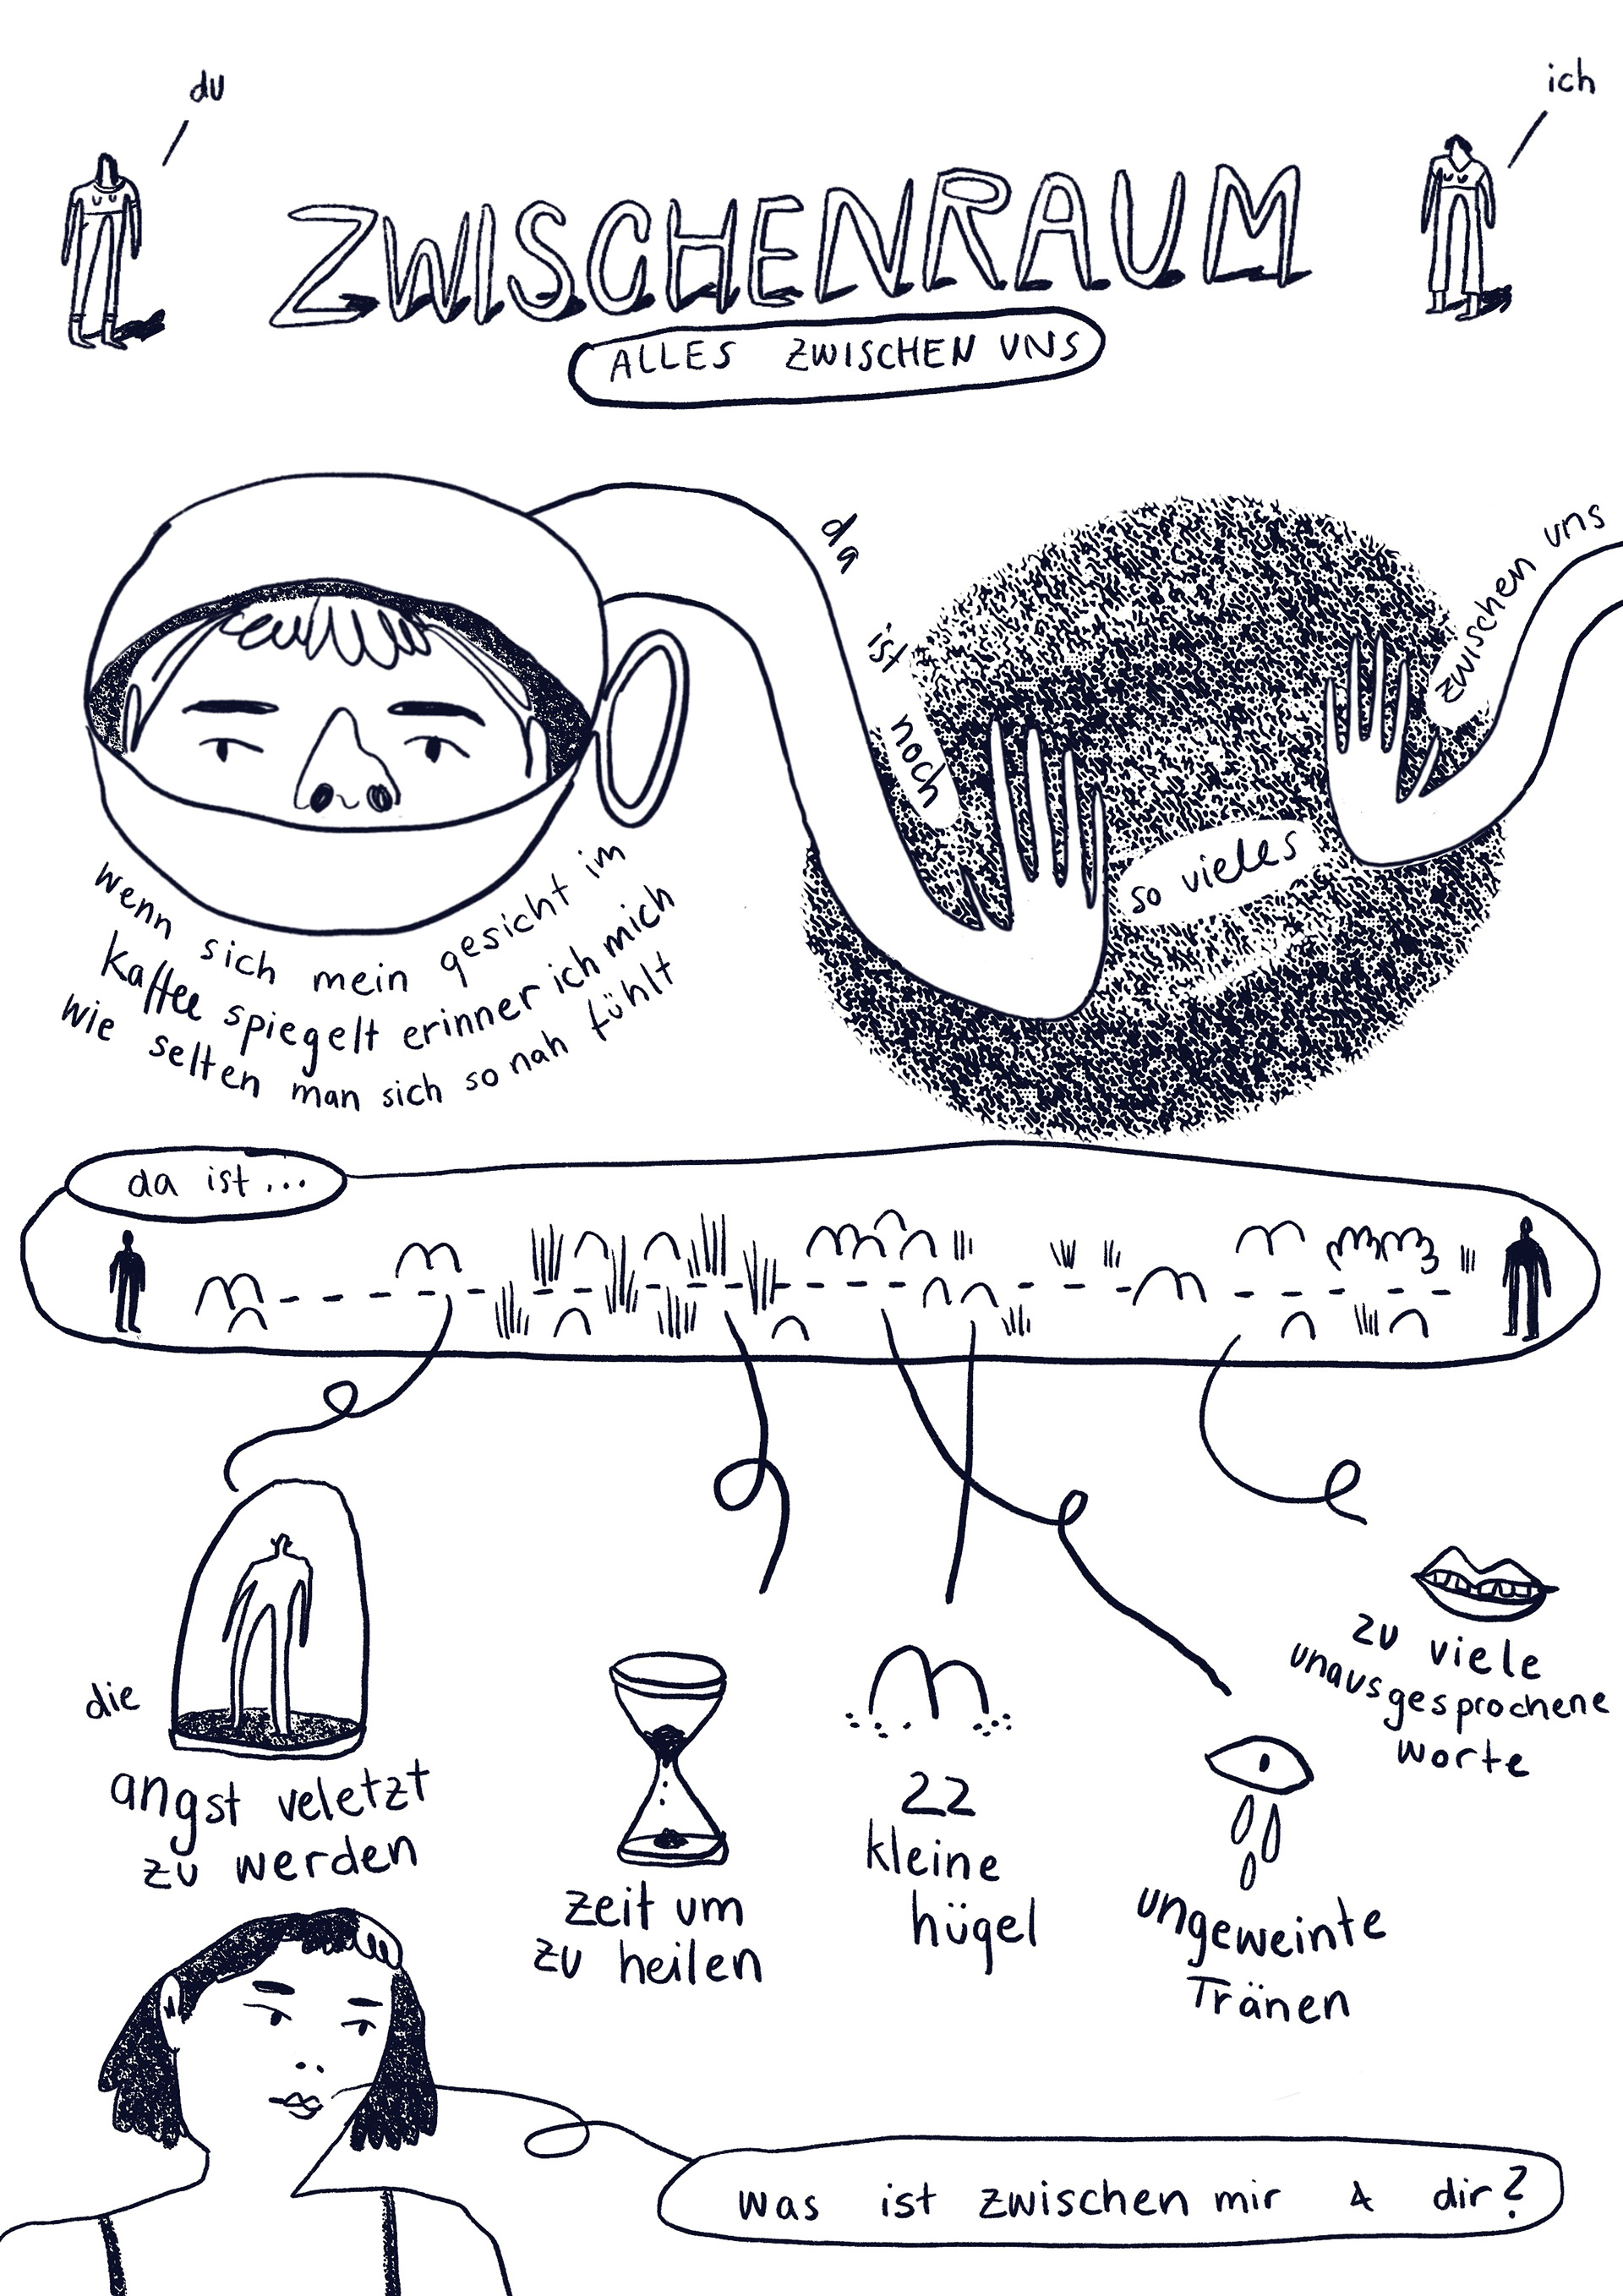 du
ich
ZWISCHENRAUM
ALLES ZWISCHEN UNS
wenn sich mein gesicht im
kaffee spiegelt erinner ich mich
wie selten man sich so nah fühlt
da ist noch so vieles zwischen uns
da ist...
die
angst veletzt
zu werden
zeit um
zu heilen
22
kleine
hügel
ungeweinte
Tränen
zu viele
unausgesprochene
worte
was ist zwischen mir & dir?